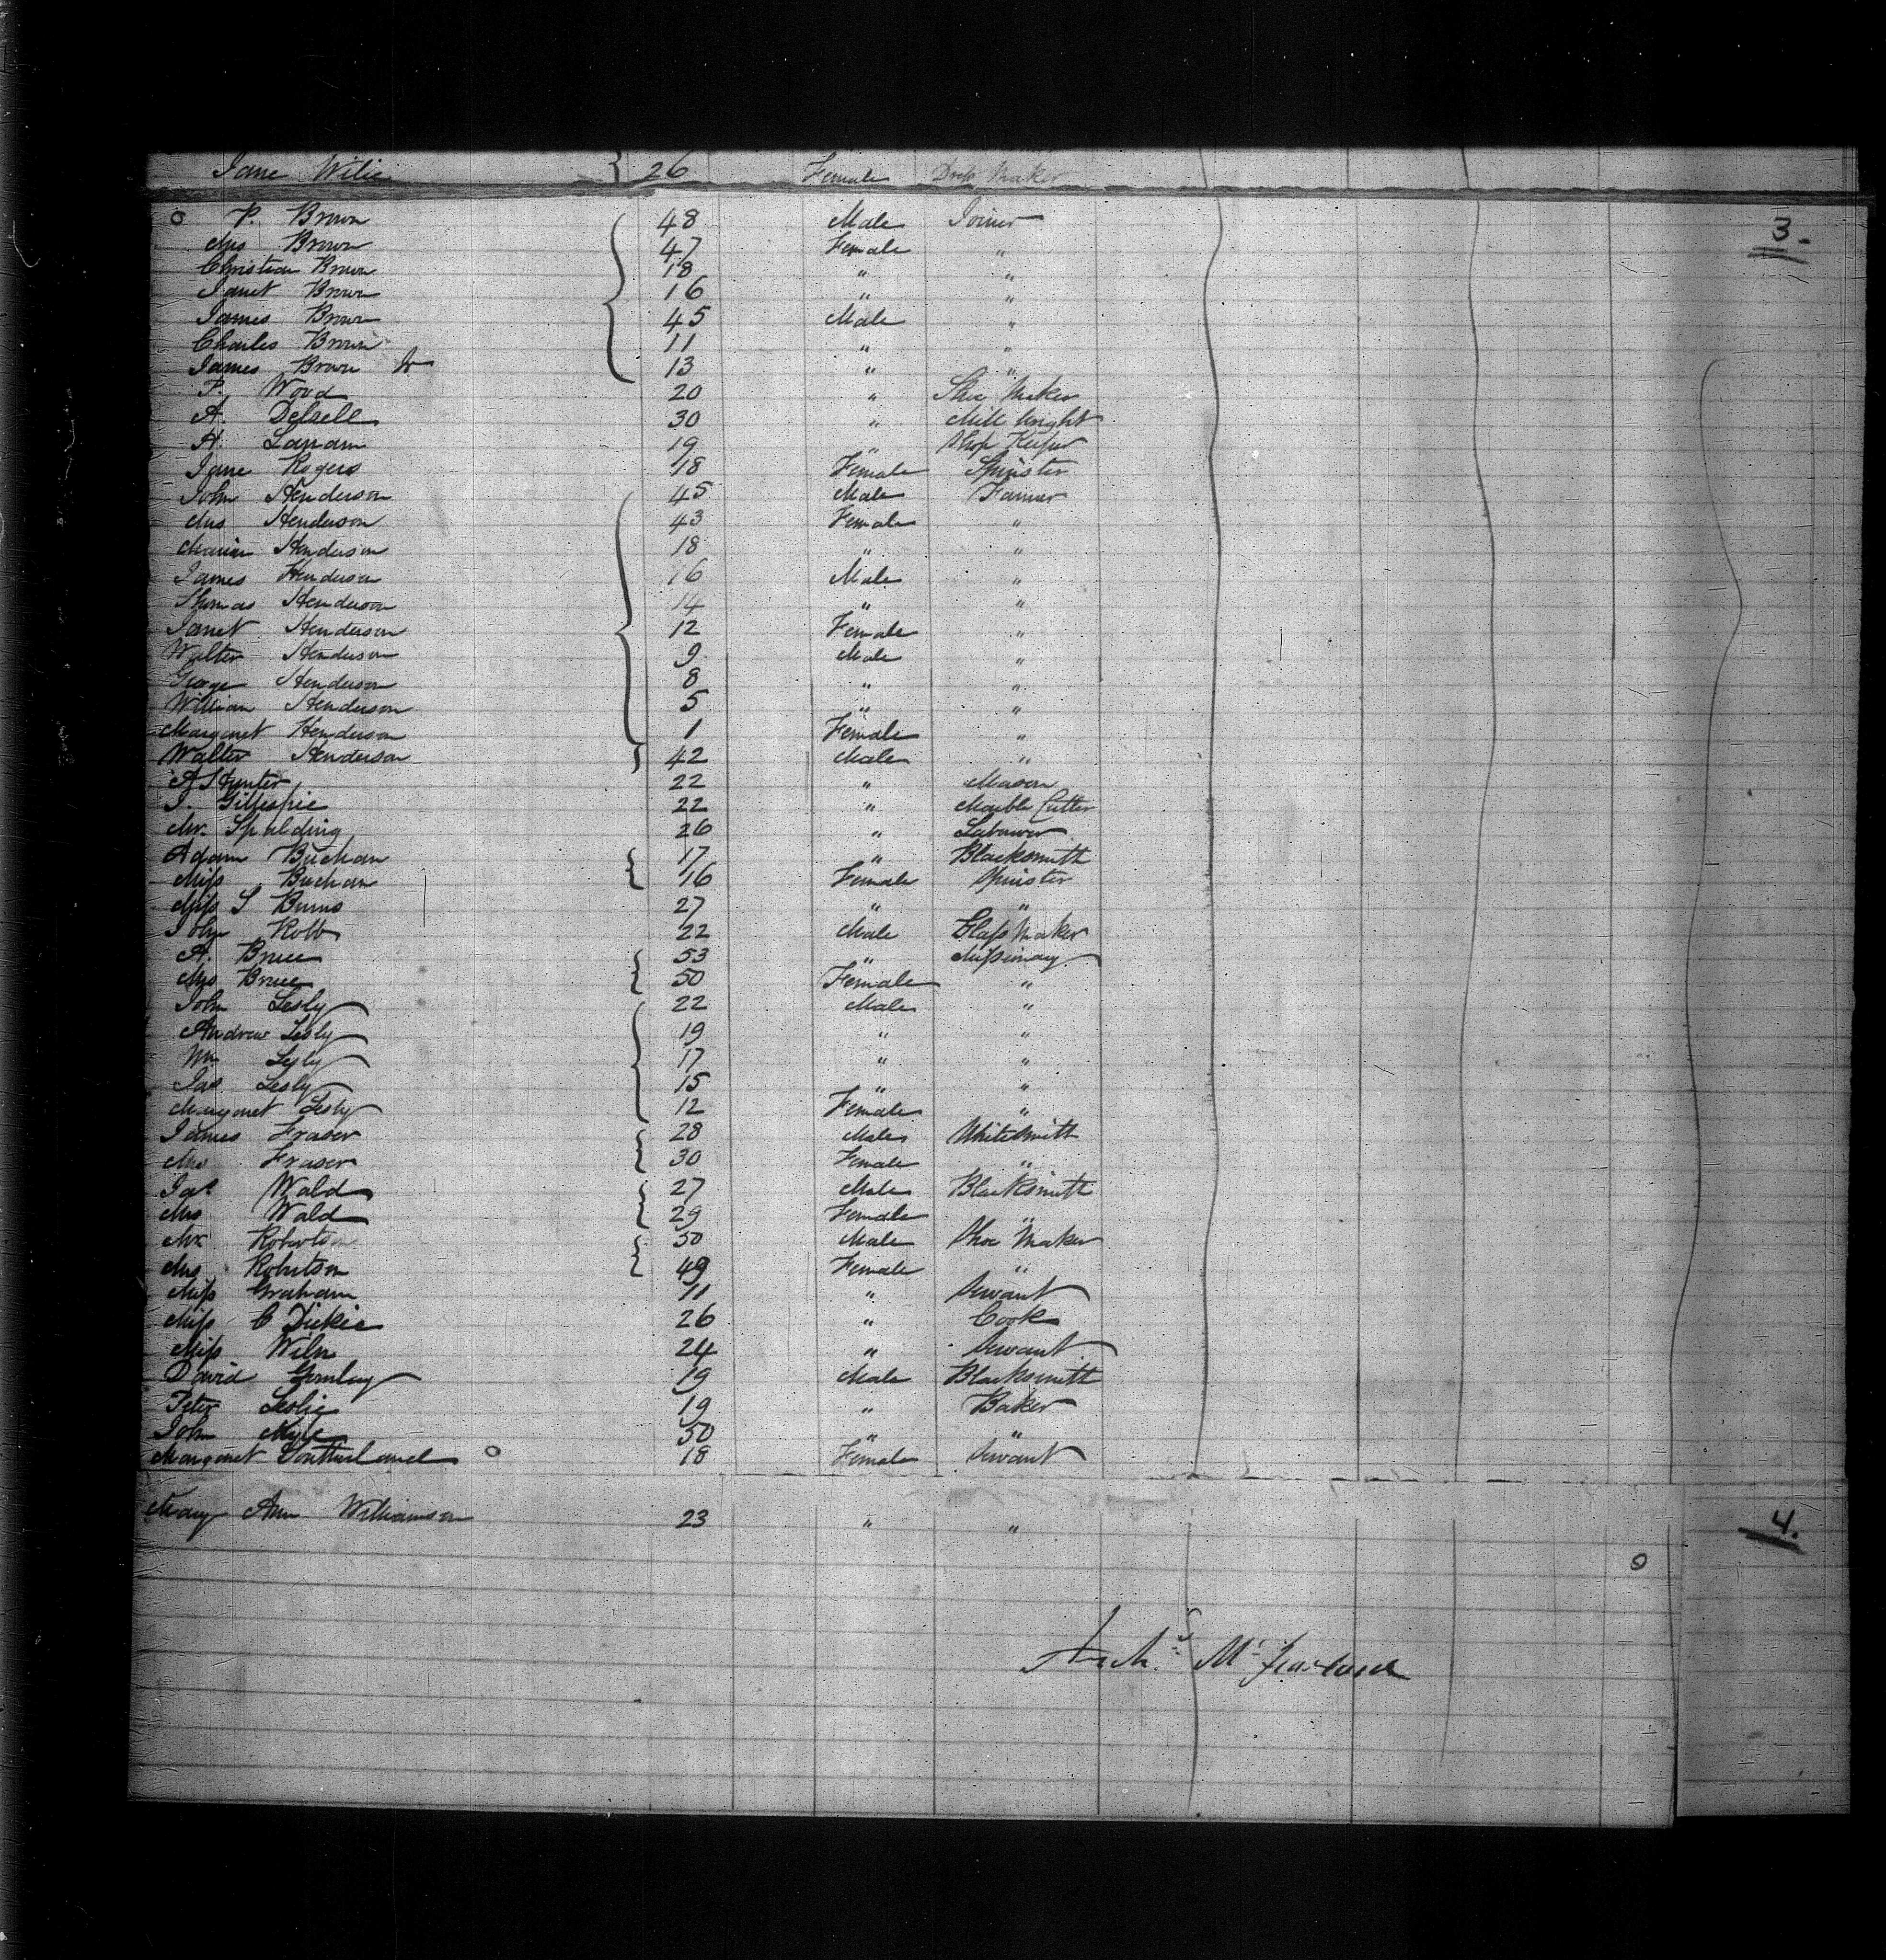 Jane Wilie 26 Female Dress Maker
P. Brown 48 Male Joiner 3.
Mrs Brown 47 Female "
Christian Brown 18 " "
Janet Brown 16 " "
James Brown 45 Male "
Charles Brown 11 " "
James Brown Jr 13 " "
P. Wood 20 " Shoe Maker
A. 30 " Mill Wright
A. 19 " Shop Keeper
Jane Rogers 18 Female Spinster
John Henderson 45 Male Farmer
Mrs Henderson 43 Female "
Henderson 18 " "
James Henderson 16 Male "
Thomas Henderson 14 " "
Janet Henderson 12 Female "
Walter Henderson 9 Male "
George Henderson 8 " "
William Henderson 5 " "
Margaret Henderson 1 Female "
Walter Henderson 42 Male "
A Hunter 22 " Mason
J. Gillespie 22 " Marble Cutter
Mr. Spalding 26 " Labourer
Adam Buchan 17 " Blacksmith
Miss Buchan 16 Female Spinster
Miss S Burns 27 " "
John Robb 22 Male Glass Maker
A. Bruce 53 " Missionary
Mrs Bruce 50 Female "
John Lesly 22 Male "
Andrew Lesly 19 " "
Wm Lesly 17 " "
Jas Lesly 15 " "
Margaret Lesly 12 Female "
James Fraser 28 Male Whitesmith
Mrs Fraser 30 Female "
Jas Wald 27 Male Blacksmith
Mrs Wald 29 Female "
Mr Robertson 50 Male Shoe Maker
Mrs Robertson 49 Female "
Miss Graham 11 " Servant
Miss C Dickie 26 " Cook
Miss 24 " Servant
David 19 Male Blacksmith
Peter Leslie 19 " Baker
John Kyle 50 " "
Margaret Southerland 18 Female Servant
Mary Ann Williamson 23 " " 4.
Archd McFarlane